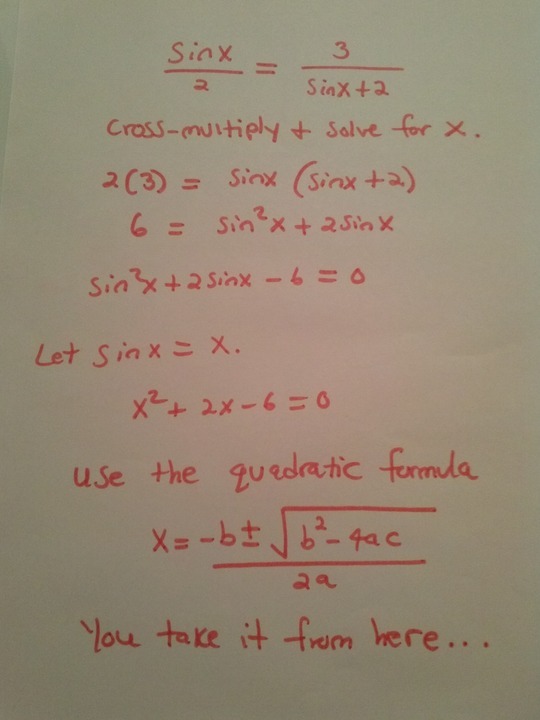 sinx/2 = 3/sinx+2
cross-multiply + solve for x.
2(3) = sinx (sinx+2)
6 = sin²x + 2sinx
sin²x + 2sinx - 6 = 0
Let sinx = x.
x² + 2x - 6 = 0
use the quadratic formula
x = -b ± √b² - 4ac / 2a
You take it from here...